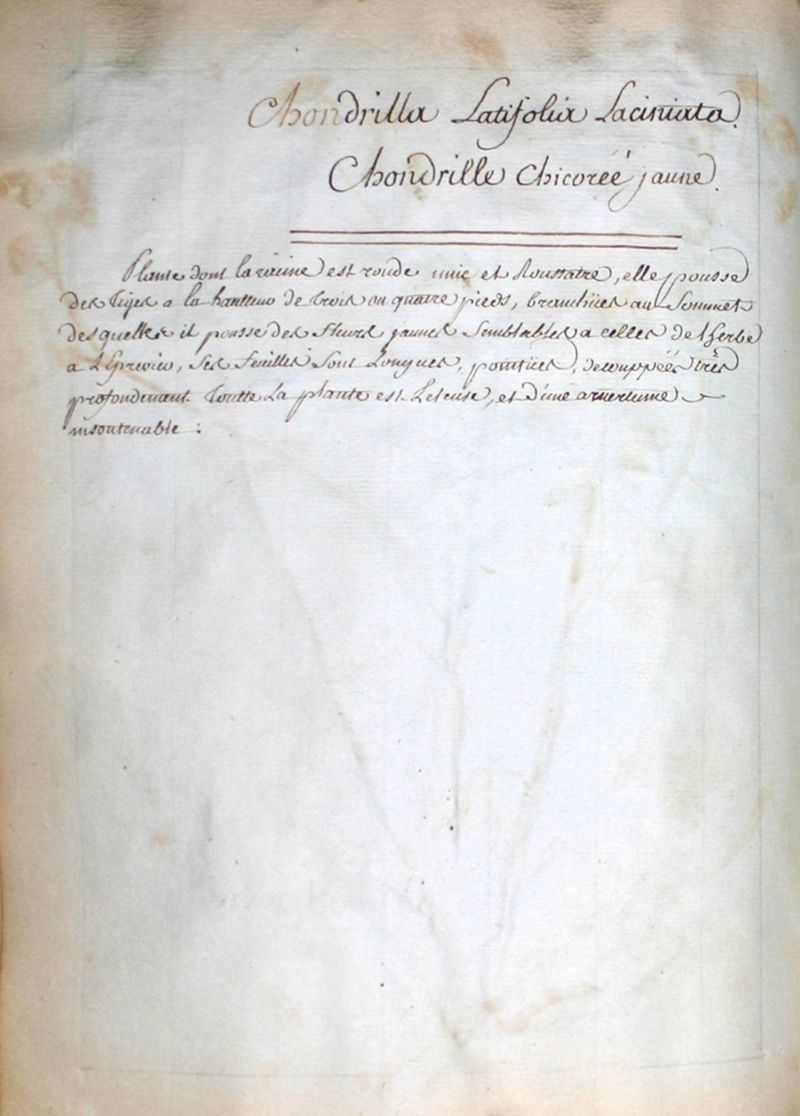 Chondrilla Latifolia Laciniata.
Chondrille Chicoreé jaune.
Plante dont la racine est ronde unie et Roussatre, elle pousse
des Tiges a la hautteur de trois ou quatre pieds, branchües au Sommet
desquelles il pousse des fleurs jaunes Semblables a celles de l'herbe
a L'Eprevier, Ses feuilles Sont Longues, pointües, decouppées très
profondement. Toutte La plante est Leteuse, et d'une amertume
insoutenable :